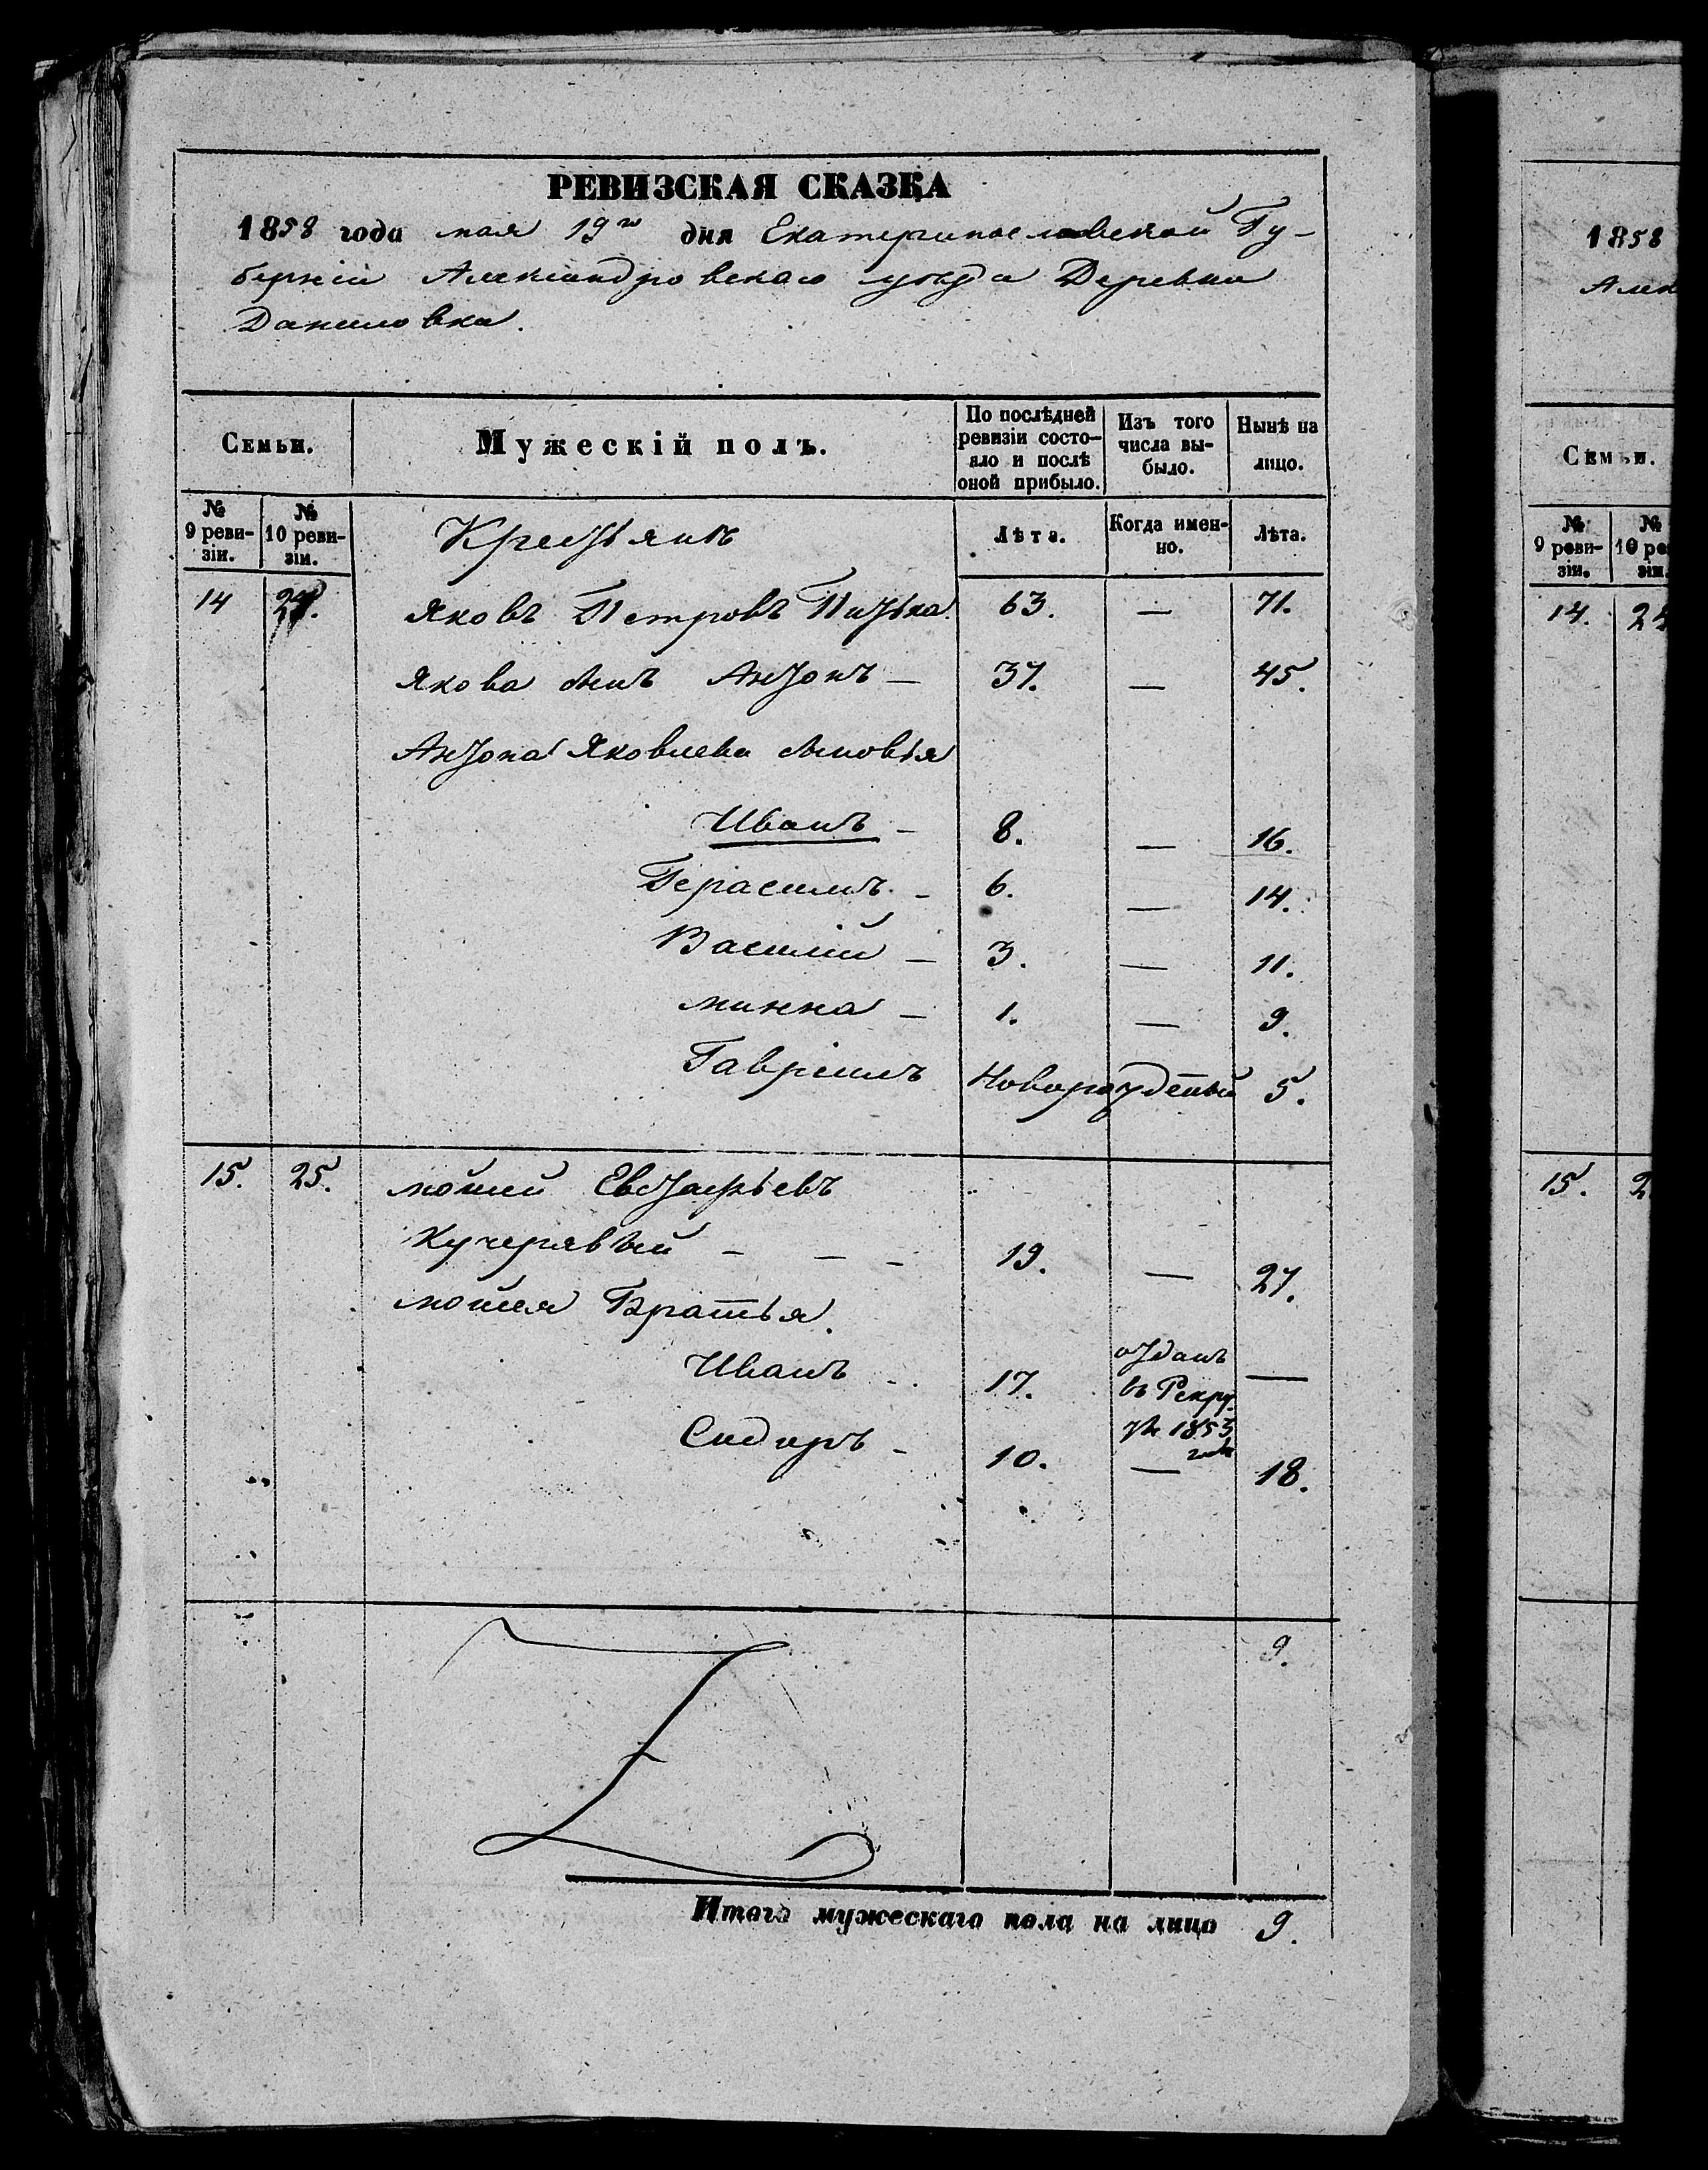 РЕВИЗСКАЯ СКАЗКА
1858 года мая 19го дня Екатеринославской Гу-
берніи Александровскаго уѣзда Деревни
Даниловки.
Семьи.
Мужескій полъ.
По послѣдней ревизіи состо-яло и послѣ оной прибыло.
Изъ того числа вы-было.
Нынѣ на лицо.
№ 9 реви-зіи.
№ 10 реви-зіи.
Крестьянъ
Лѣта.
Когда имен-но.
Лѣта.
14 24. Яковъ Петровъ 63. — 71.
Якова сынъ Антонъ — 37. — 45.
Антона Яковлева сыновья
Иванъ — 8. — 16.
Герасимъ — 6. — 14.
Василій — 3. — 11.
минна — 1. — 9.
Гавріилъ Новорожденный 5.
15. 25. мойсей Евстафьевъ
Кучерявый — — — 19. — 27.
Братья.
Иванъ 17. отданъ въ Рекру-ты 1853 года —
Сидоръ — 10. — 18.
9.
Итого мужескаго пола на лицо 9.
1858
Алек
Семьи.
№ 9 реви-зіи.
№ 10 ре зіи.
14. 24
15. 2